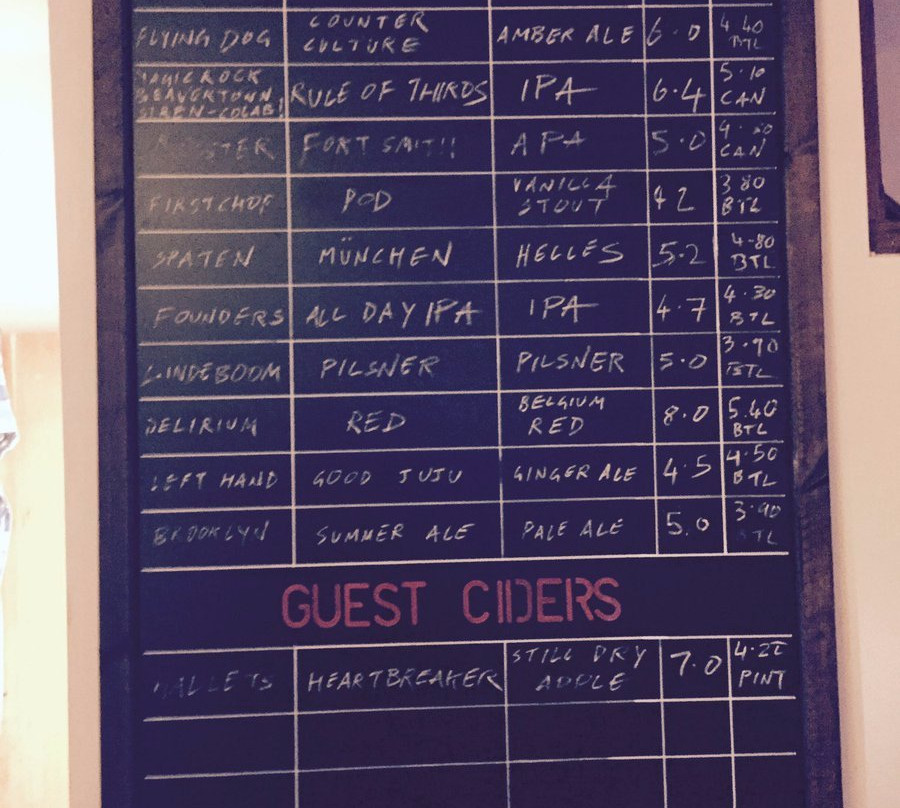 FLYING DOG COUNTER CULTURE AMBER ALE 6.0 4.40 BTL
MAGIC ROCK BEAVERTOWN SIREN-COLAB! RULE OF THIRDS IPA 6.4 5.10 CAN
FORT SMITH APA 5.0 CAN
FIRSTCHOP POD VANILLA STOUT 4.2 3.80 BTL
SPATEN MÜNCHEN HELLES 5.2 4-80 BTL
FOUNDERS ALL DAY IPA IPA 4.7 4.30 BTL
LINDEBOOM PILSNER PILSNER 5.0 3.90 BTL
DELIRIUM RED BELGIUM RED 8.0 5.40 BTL
LEFT HAND GOOD JUJU GINGER ALE 4.5 4.50 BTL
BROOKLYN SUMMER ALE PALE ALE 5.0 3.90 BTL
GUEST CIDERS
HEARTBREAKER STILL DRY APPLE 7.0 PINT